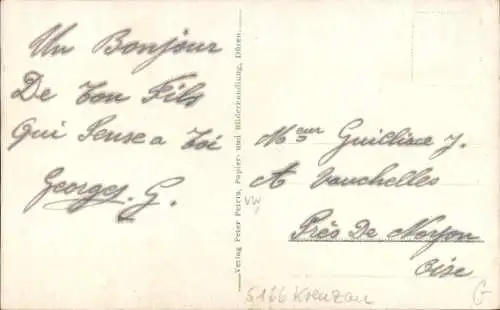 Un Bonjour
De ton Fils
Qui Pense a toi
Georges. G.
Verlag Peter Petris, Papier- und Bilderhandlung, Düren.
Meur J.
A Vauchelles
Près De Noyon
Oise
5166 Kreuzau
G